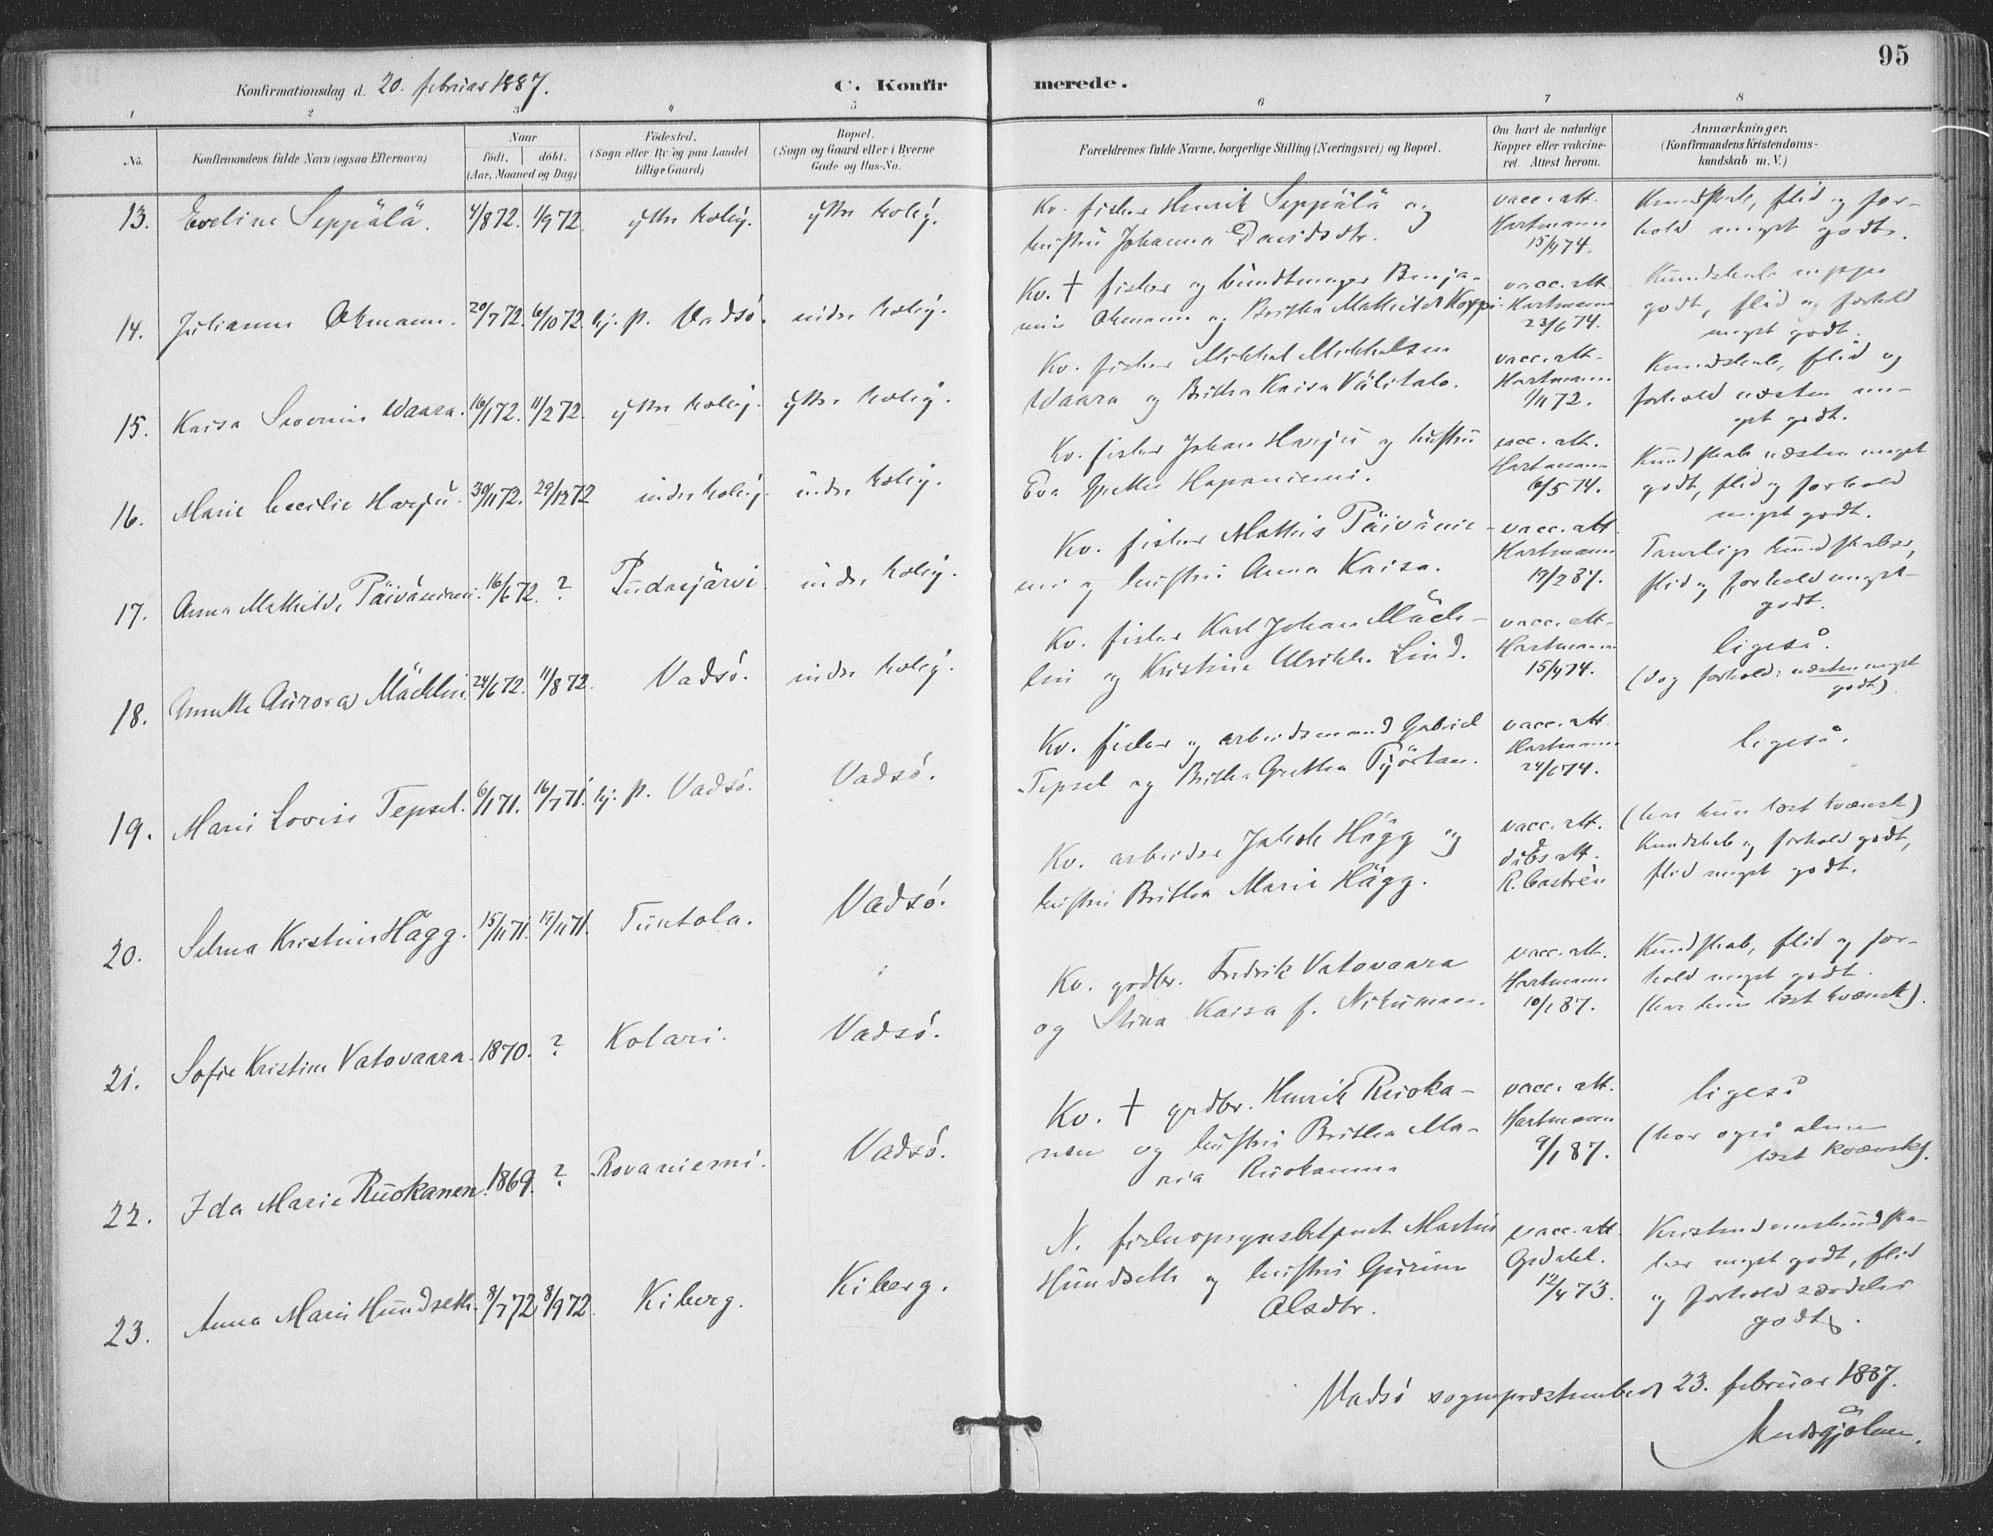 95
Konfirmationsdag d. 20. februar 1887.
C. Konfirmerede.
1 2 3 4 5 6 7 8
No.
Konfirmandens fulde Navn (ogsaa Efternavn)
Naar
födt. döbt.
(Aar, Maaned og Dag)
Födested.
(Sogn eller By og paa Landet
tillige Gaard)
Bopæl.
(Sogn og Gaard eller i Byerne
Gade og Hus-No.
Forældrenes fulde Navne, borgerlige Stilling (Næringsvei) og Bopæl.
Om havt de naturlige
Kopper eller vakcine-
ret. Attest herom.
Anmærkninger.
(Konfirmandens Kristendoms-
kundskab m. V.)
13. Eveline Seppälä. 4/8 72. 1/9 72.
Kv. fisker Henrik Seppälä og
hustru Johanna Davidsdtr.
vacc. att.
Hartmann
15/4 74.
Kundskab, flid og for-
hold meget godt.
14. Julianne Akmann. 20/7 72. 6/10 72. kj. p. Vadsö.
Kv. † fisker og bundtmager Benja-
min Akmann og Britha Mathilde Koppi.
vacc. att.
Hartmann
23/6 74.
Kundskab meget
godt, flid og forhold
meget godt.
15. Kaisa Severine Waara. 16/1 72. 11/2 72.
Kv. fisker Mikkel Mikkelsen
Waara og Britha Kaisa Välitalo.
vacc. att.
Hartmann
1/11 72.
Kundskab, flid og
forhold næsten me-
get godt.
16. Marie Cecilie Harju. 30/11 72. 29/12 72
Kv. fisker Johan Harju og hustru
Eva Grethe Hapaniemi.
vacc. att.
Hartmann
6/5 74.
Kundskab næsten meget
godt, flid og forhold
meget godt.
17. Anna Mathilde Päiväniemi. 16/6 72. ? Pudasjärvi
Kv. fisker Mathis Päivänie-
mi og hustru Anna Kaisa.
vacc. att.
Hartmann
19/2 87.
Tarvelige kundskaber,
flid og forhold meget
godt.
18. Anette Aurora Mäcklin. 24/6 72. 11/8 72. Vadsö.
Kv. fisker Karl Johan Mäck-
lin og Kristine Ulrikke Lind.
vacc. att.
Hartmann
15/4 74.
ligeså.
(dog forhold: næsten meget
godt).
19. Marie Lovise Tepsel. 6/1 71. 16/7 71. kj. p. Vadsö. Vadsö.
Kv. fisker og arbeidsmand Gabriel
Tepsel og Britha Gretha
vacc. att.
Hartmann
24/6 74.
ligeså.
20. Selma Kristine Hägg. 15/11 71. 19/11 71. Vadsö.
Kv. arbeider Jakob Hägg og
hustru Britha Maria Hägg.
vacc. att.
dåbs att.
R. Castrèn
(har kun læst kvænsk)
Kundskab og forhold godt,
flid meget godt.
21. Sofie Kristine Vatovaara. 1870. ? Kolari. Vadsö.
Kv. grdbr. Fredrik Vatovaara
og Stina Kaisa f.
vacc. att.
Hartmann
10/1 87.
Kundskab, flid og for-
hold meget godt.
(har kun læst kvænsk).
22. Ida Marie Ruokanen. 1869. ? Rovaniemi. Vadsö.
Kv. † grdbr. Henrik Ruoka-
nen og hustru Britha Ma-
ria Ruokanen
vacc. att.
Hartmann
9/1 87.
ligeså
(har også alene
læst kvænsk).
23. Anna Marie Hundseth. 8/7 72. 8/9 72. Kiberg. Kiberg.
N. fiskeopsynsbetjent Martin
Hundseth og hustru Gurine
Olsdtr.
vacc. att
12/4 73.
Kristendomskundska-
ber meget godt, flid
og forhold særdeles
godt.
Vadsö sogneprestembed 23. februar 1887.